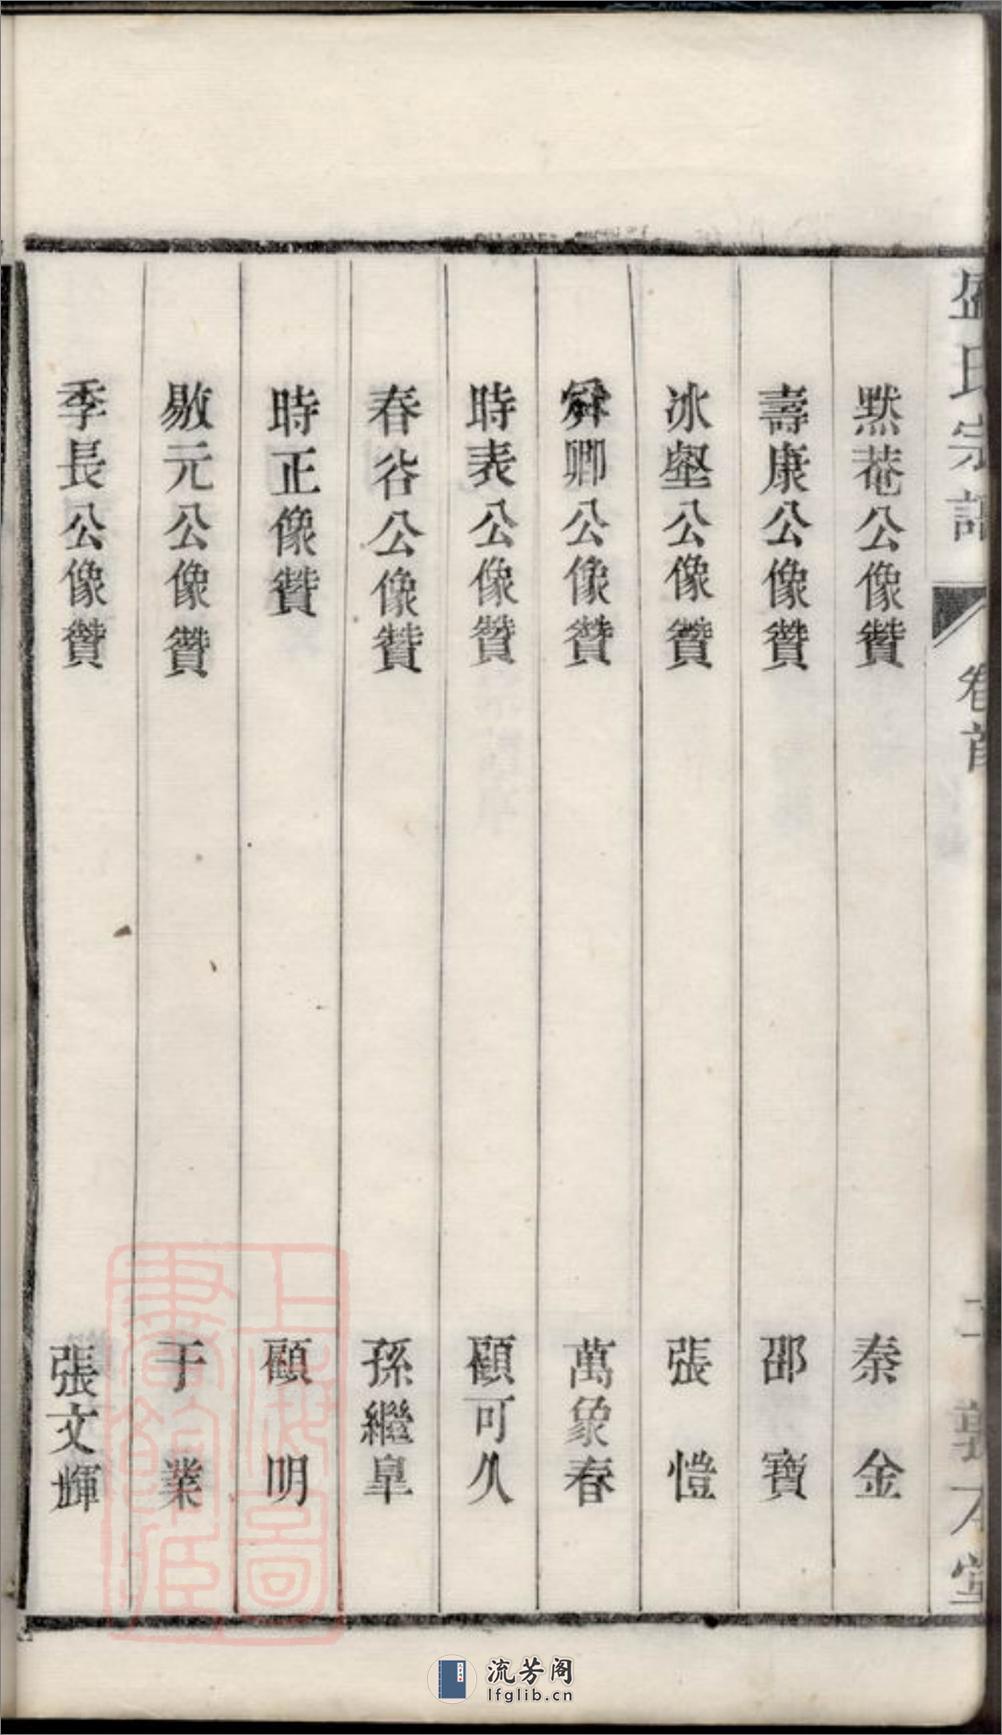 盛氏宗譜
卷首
敦本堂
默菴公像贊 秦金
壽康公像贊 邵寶
冰壑公像贊 張愷
舜卿公像贊 萬象春
時表公像贊 顧可久
春谷公像贊 孫繼臯
時正像贊 顧明
敭元公像贊 于業
季長公像贊 張文輝
上海圖書館藏
流芳阁
lfglib.cn